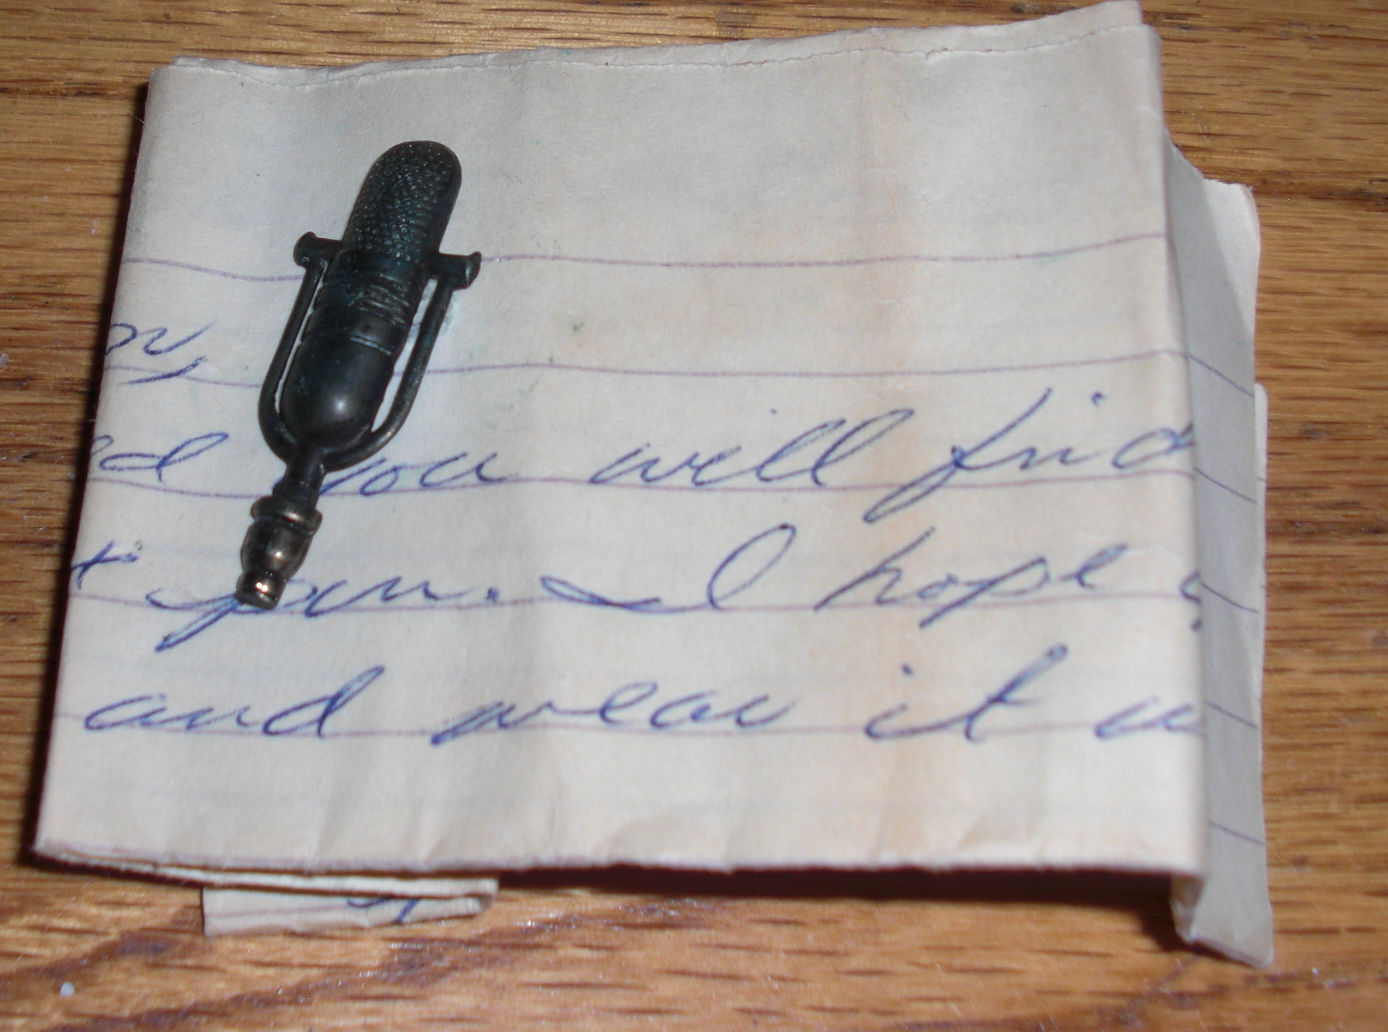 you will find
pin. I hope
and wear it